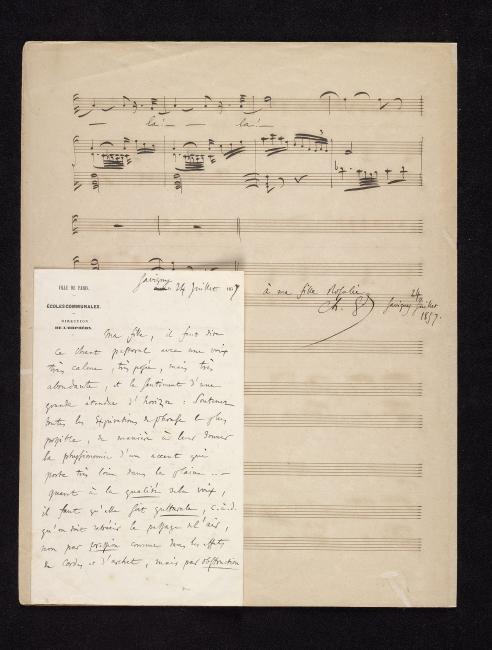 la!— la!—
à ma fille Rosalie
Ch. Gd
24 Juillet
Savigny
1857.
VILLE DE PARIS.
ÉCOLES COMMUNALES.
DIRECTION
DE L'ORPHÉON.
Savigny
24 Juillet 1857
Ma fille, il faut dire
ce chant pastoral avec une voix
très calme, très posée, mais très
abondante, et le sentiment d'une
grande étendue d'horizon : Soutenez
toutes les expirations de phrase le plus
possible, de manière à leur donner
la physionomie d'un accent qui
porte très loin dans la plaine —
quant à la qualité de la voix,
il faut qu'elle soit gutturale, c.à.d.
qu'on doit rétrécir le passage de l'air,
non par pression comme dans les effets
de cordes et d'archet, mais par obstruction